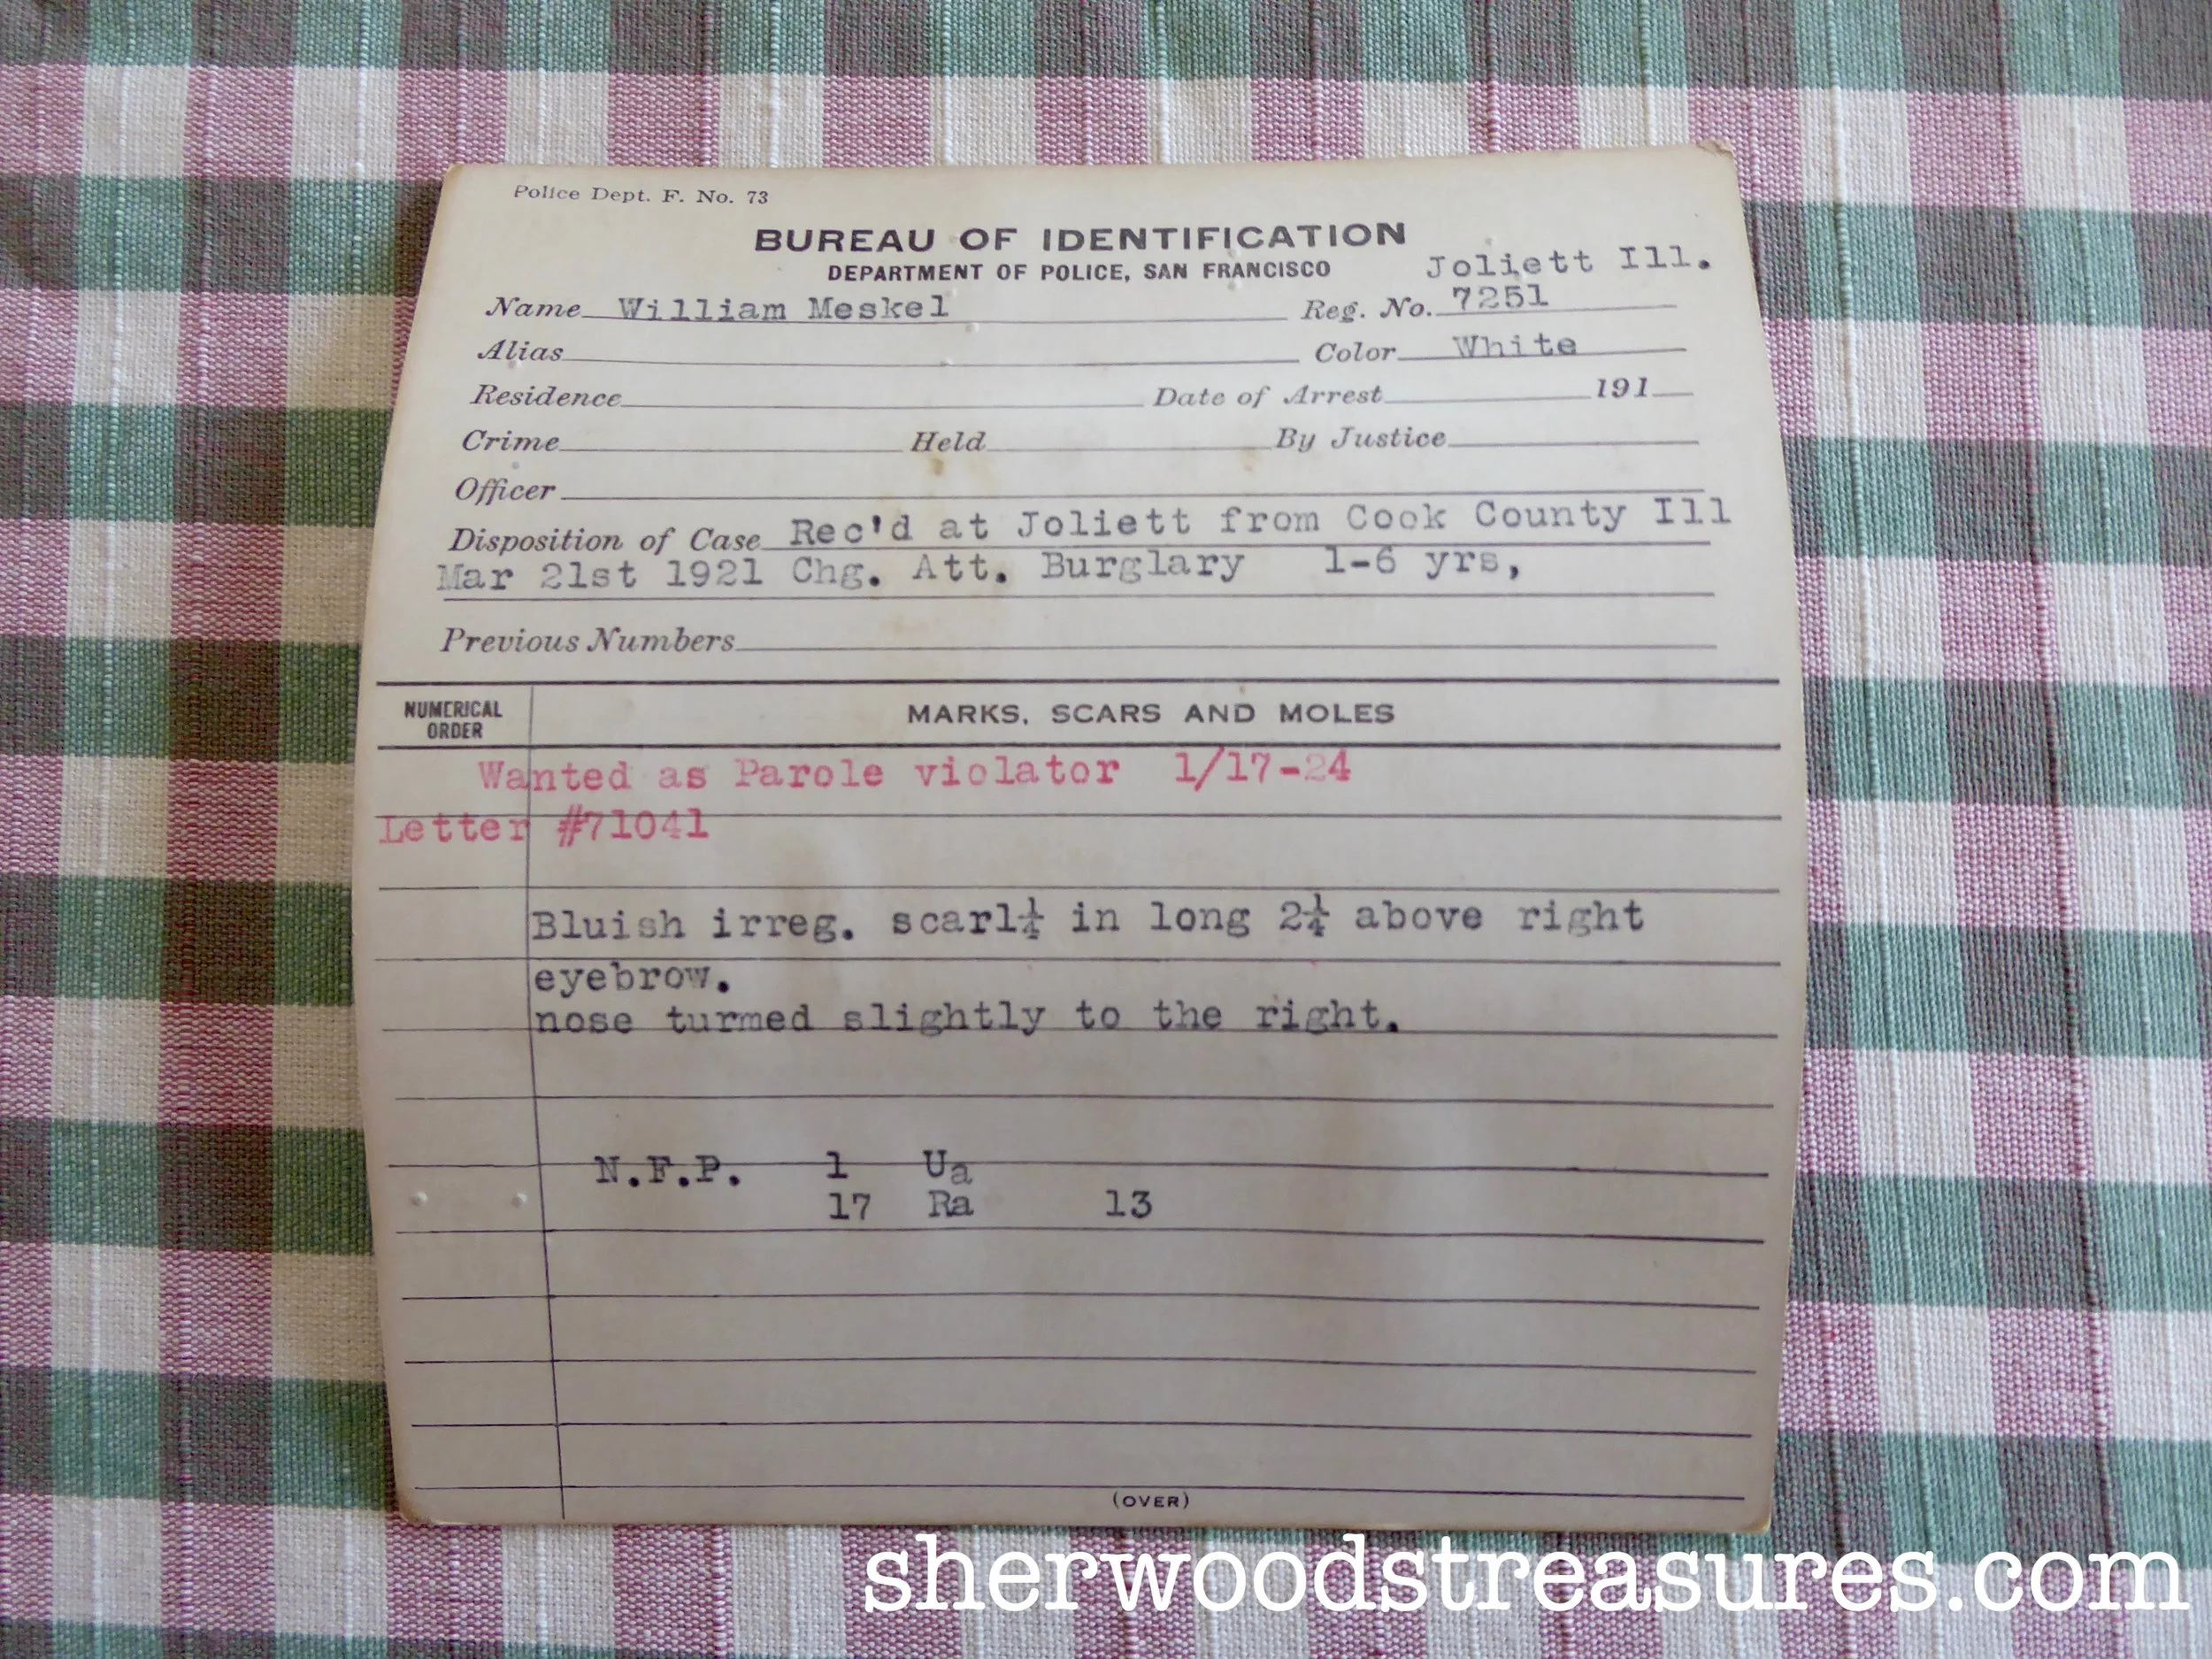 Police Dept. F. No. 73
BUREAU OF IDENTIFICATION
DEPARTMENT OF POLICE, SAN FRANCISCO
Joliett Ill.
Name William Meskel Reg. No. 7251
Alias Color White
Residence Date of Arrest 191
Crime Held By Justice
Officer
Disposition of Case Rec'd at Joliett from Cook County Ill
Mar 21st 1921 Chg. Att. Burglary 1-6 yrs,
Previous Numbers
NUMERICAL ORDER MARKS, SCARS AND MOLES
Wanted as Parole violator 1/17-24
Letter #71041
Bluish irreg. scar1¼ in long 2¼ above right
eyebrow.
nose turmed slightly to the right.
N.F.P. 1 Ua
17 Ra 13
(OVER)
sherwoodstreasures.com